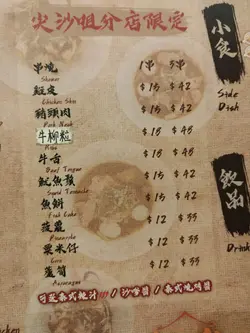 尖沙咀分店限定
小食
Side Dish
串燒 1串 3串
Skewer
雞皮 $15 $42
Chicken Skin
豬頸肉 $15 $42
Pork Neck
牛柳粒 $16 $45
牛舌 $15 $42
Beef Tongue
魷魚鬚 $15 $42
Squid Tentacle
魚餅 $12 $35
Fish Cake
菠蘿 $12 $35
Pineapple
粟米仔 $12 $35
Corn
蘆筍 $12 $35
Asparagus
飲品
Drink
可跟泰式辣汁 / 沙嗲醬 / 泰式燒烤醬